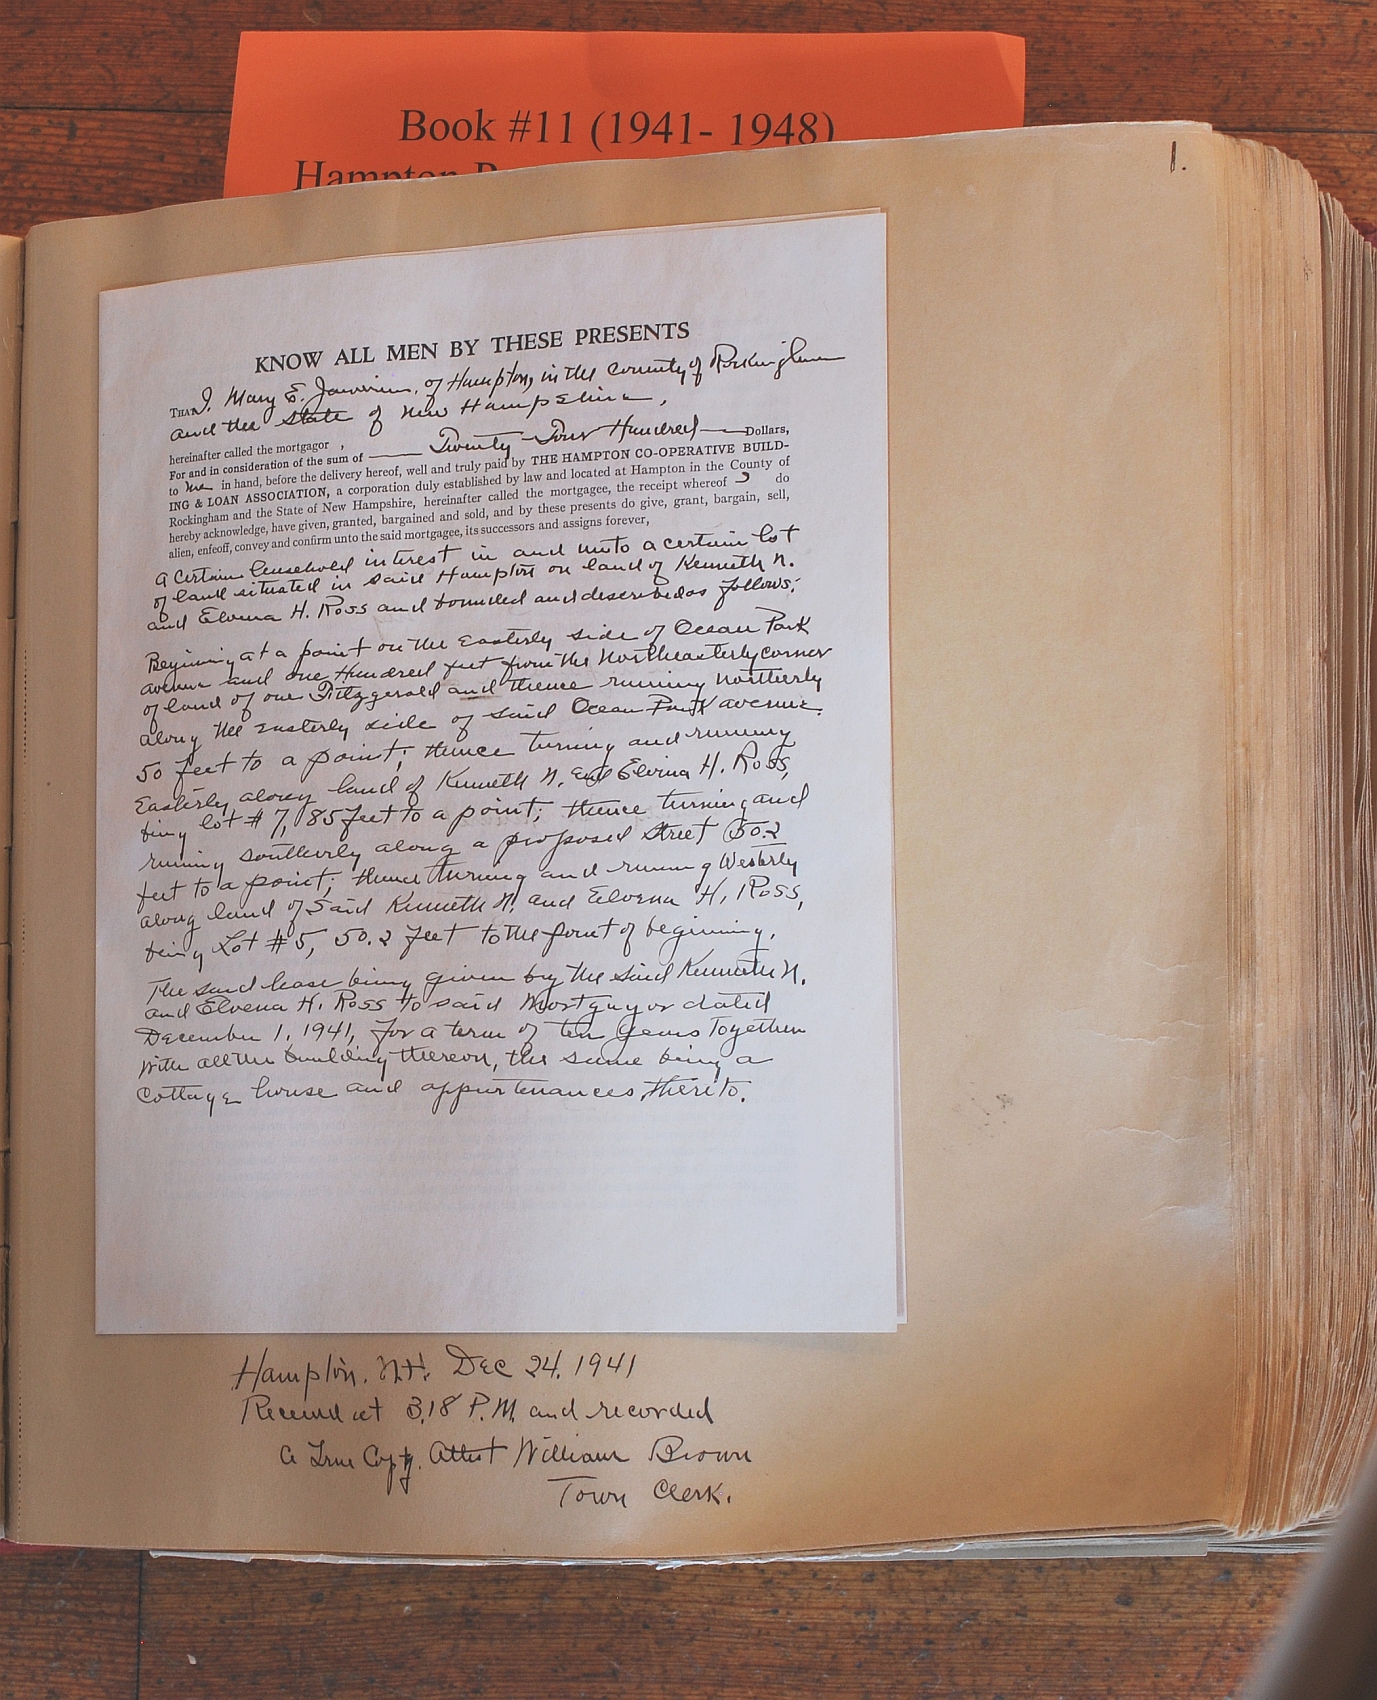 Book #11 (1941- 1948)
Hampton
1.
KNOW ALL MEN BY THESE PRESENTS
THAT I. Mary E. of Hampton, in the county of Rockingham
and the State of New Hampshire,
hereinafter called the mortgagor ,
For and in consideration of the sum of Twenty-Four Hundred Dollars,
to me in hand, before the delivery hereof, well and truly paid by THE HAMPTON CO-OPERATIVE BUILD-
ING & LOAN ASSOCIATION, a corporation duly established by law and located at Hampton in the County of
Rockingham and the State of New Hampshire, hereinafter called the mortgagee, the receipt whereof I do
hereby acknowledge, have given, granted, bargained and sold, and by these presents do give, grant, bargain, sell,
alien, enfeoff, convey and confirm unto the said mortgagee, its successors and assigns forever,
a certain leasehold interest in and unto a certain lot
of land situated in said Hampton on land of Kenneth N.
and Elvena H. Ross and bounded and described as follows:
Beginning at a point on the Easterly side of Ocean Park
avenue and one Hundred feet from the Northeasterly corner
of land of one Fitzgerald and thence running northerly
along the Easterly side of said Ocean Park avenue.
50 feet to a point; thence turning and running
Easterly along land of Kenneth N. and Elvina H. Ross,
being lot #7, 85 feet to a point; thence turning and
running southerly along a proposed street 50.2
feet to a point; thence turning and running Westerly
along land of Said Kenneth N. and Elvena H, Ross,
being Lot #5, 50.2 feet to the point of begining.
The said lease being given by the said Kenneth N.
and Elvena H. Ross to said Mortgagor dated
December 1, 1941, for a term of ten years Together
with all the building thereon, the same being a
Cottage house and appurtenances thereto.
Hampton, N.H. Dec 24, 1941
Received at 3.18 P.M. and recorded
A True Copy. Attest William Brown
Town Clerk.